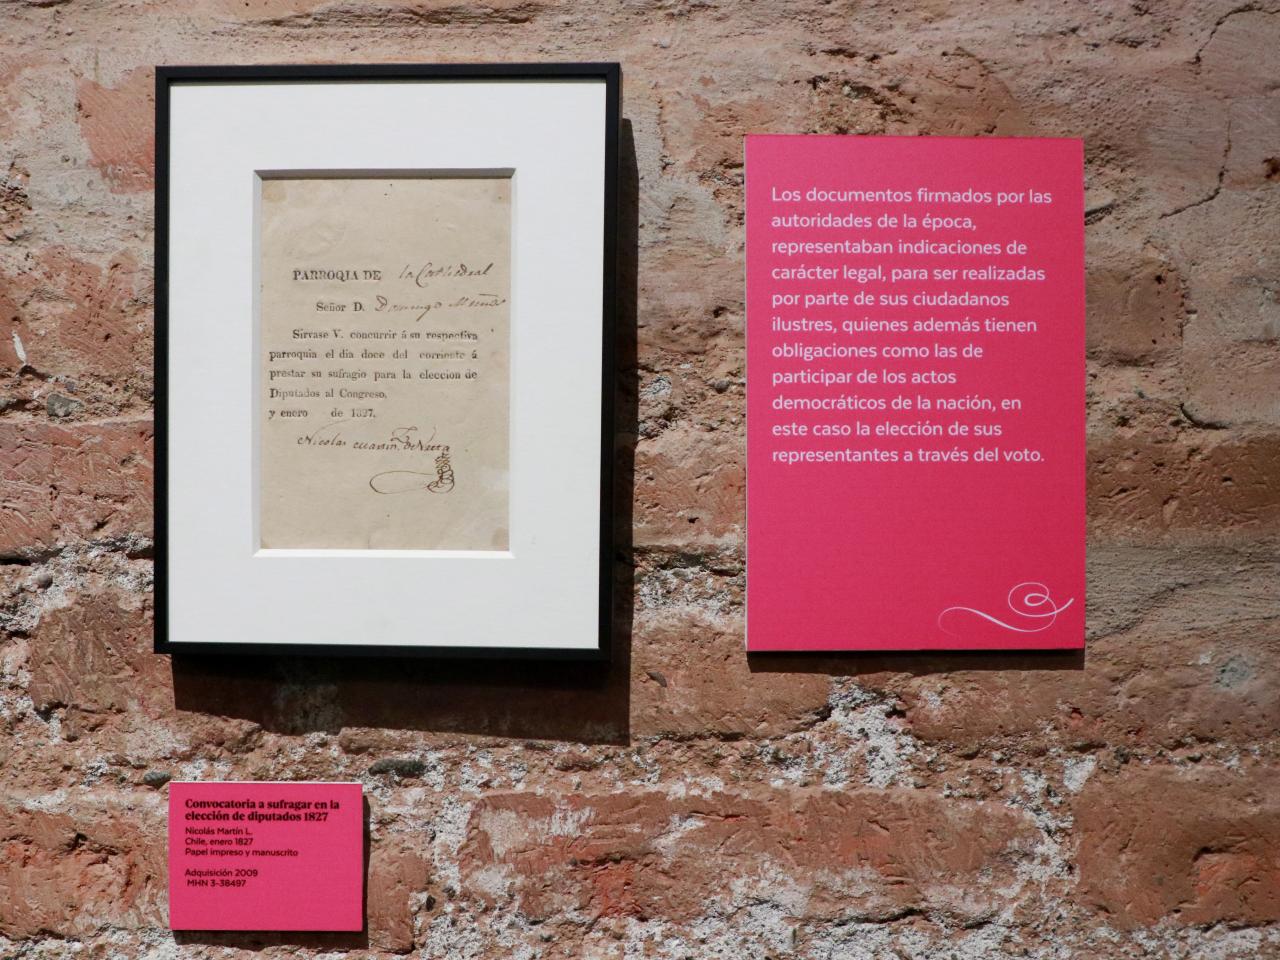 PARROQIA DE la Cathedral
Señor D. Domingo
Sirvase V. concurrir á su respectiva
parroquia el dia doce del corriente á
prestar su sufragio para la eleccion de
Diputados al Congreso.
y enero de 1827.
Nicolas
Los documentos firmados por las
autoridades de la época,
representaban indicaciones de
carácter legal, para ser realizadas
por parte de sus ciudadanos
ilustres, quienes además tienen
obligaciones como las de
participar de los actos
democráticos de la nación, en
este caso la elección de sus
representantes a través del voto.
Convocatoria a sufragar en la
elección de diputados 1827
Nicolás Martín L.
Chile, enero 1827
Papel impreso y manuscrito
Adquisición 2009
MHN 3-38497